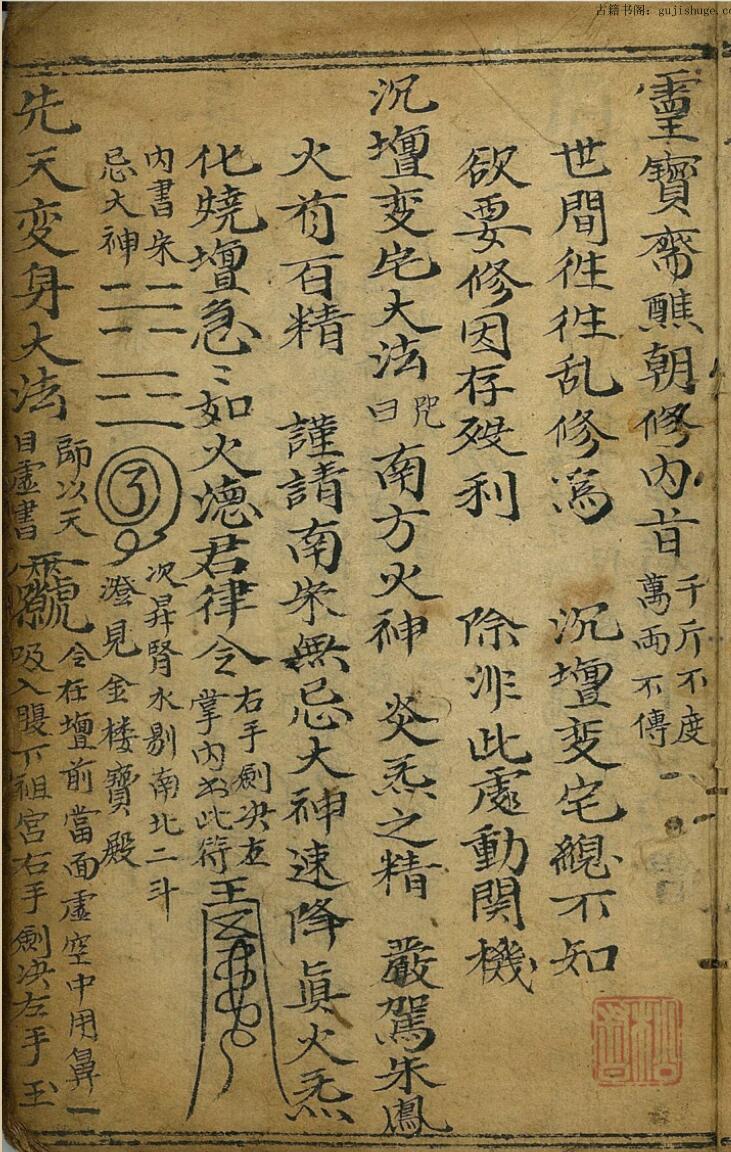 古籍书阁：gujishuge.co
靈寶斎醮朝修内首 千斤不度
萬両不傳
世間徃徃乱修為 沉壇变宅緫不知
欲要修因存殁利 除非此處動関機
沉壇变宅大法 咒曰 南方火神 炎炁之精 嚴駕朱鳳
火首百精 謹請南朱無忌大神速降眞火炁
化燒壇急〻如火德君律令 右手劍决左
掌内書此符
内書朱
忌大神
次昇腎水剔南北二斗
澄見金楼寶殿
先天变身大法 師以天
目虚書 令在壇前當面虚空中用鼻一
吸入腹下祖宫右手劍决左手玉